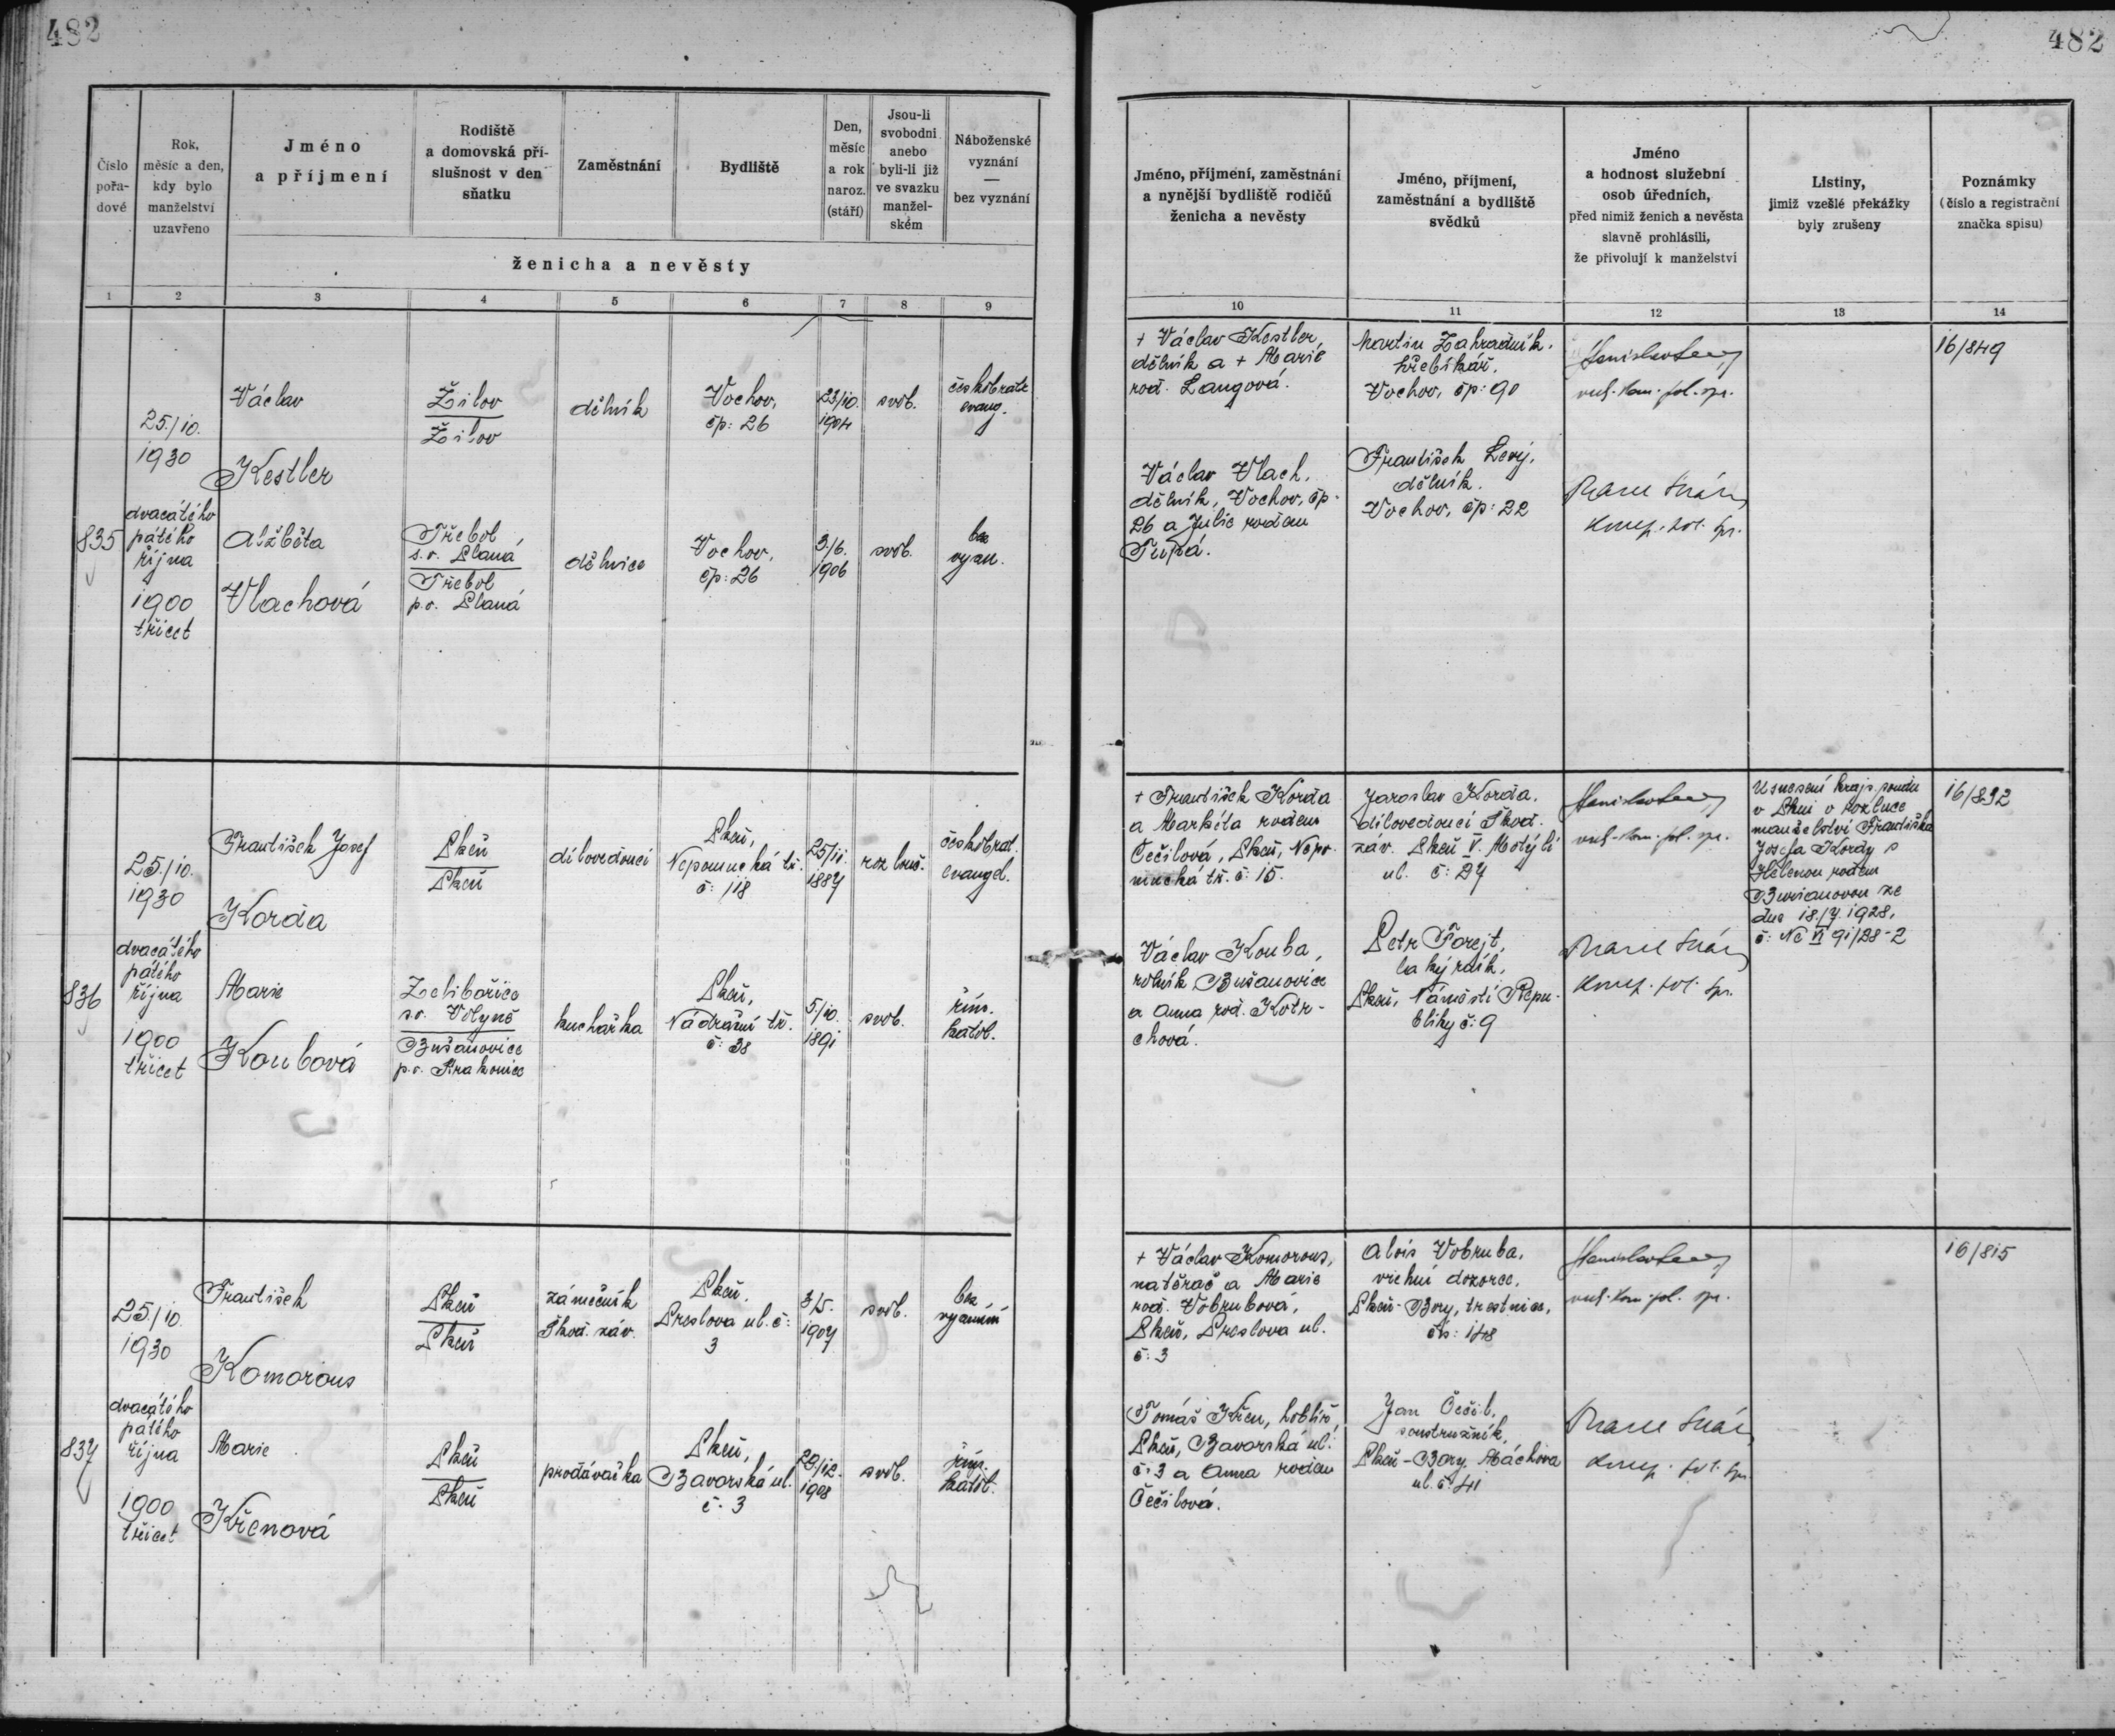 482
482
Číslo
pořa-
dové
Rok,
měsíc a den,
kdy bylo
manželství
uzavřeno
Jméno
a příjmení
Rodiště
a domovská pří-
slušnost v den
sňatku
Zaměstnání
Bydliště
Den,
měsíc
a rok
naroz.
(stáří)
Jsou-li
svobodni
anebo
byli-li již
ve svazku
manžel-
ském
Náboženské
vyznání
—
bez vyznání
ženicha a nevěsty
1 2 3 4 5 6 7 8 9
Jméno, příjmení, zaměstnání
a nynější bydliště rodičů
ženicha a nevěsty
Jméno, příjmení,
zaměstnání a bydliště
svědků
Jméno
a hodnost služební
osob úředních,
před nimiž ženich a nevěsta
slavně prohlásili,
že přivolují k manželství
Listiny,
jimiž vzešlé překážky
byly zrušeny
Poznámky
(číslo a registrační
značka spisu)
10 11 12 13 14
835
25./10.
1930
dvacátého
pátého
října
1900
třicet
Václav
Kestler
Žilov
Žilov
dělník
Vochov,
čp: 26
23/10.
1904
svob.
českobratr.
evang.
Alžběta
Vlachová
Třebel
s.o. Planá
Třebel
p.o. Planá
dělnice
Vochov,
čp: 26
3./6.
1906
svob.
bez
vyzn.
+ Václav Kestler,
dělník a + Marie
rod. Langová.
Václav Vlach,
dělník, Vochov, čp.
26 a Julie rodem
Tupá.
Martin Zahradník,
hřebíkář,
Vochov, čp: 90
František Levý,
dělník.
Vochov, čp: 22
16/849
836
25./10.
1930
dvacátého
pátého
října
1900
třicet
František Josef
Korda
Plzeň
Plzeň
dílovedoucí
Plzeň,
Nepomucká tř.
č: 118
25/11.
1887
rozlouč.
českobrat.
evangel.
Marie
Koubová
Zelibořice
s.o. Volyně
Bušanovice
p.o. Prakonice
kuchařka
Plzeň,
Nádražní tř.
č: 38
5./10.
1891
svob.
řím.
katol.
+ František Korda
a Markéta rodem
Čečilová, Plzeň, Nepo-
mucká tř. č: 15.
Václav Kouba,
rolník Bušanovice
a Anna rod. Kotr-
chová.
Jaroslav Korda,
dílovedoucí Škod.
záv. Plzeň V. Motýlí
ul. č: 27
Petr Forejt,
lakýrník,
Plzeň, Náměstí Repu-
bliky č: 9
Usnesení kraj. soudu
v Plzni o rozluce
manželství Františka
Josefa Kordy s
Helenou rodem
Burianovou ze
dne 18./7. 1928,
č: Nc VI 91/28-2
16/892
837
25./10.
1930
dvacátého
pátého
října
1900
třicet
František
Komorous
Plzeň
Plzeň
zámečník
Škod. záv.
Plzeň,
Preslova ul. č:
3
3/5.
1907
svob.
bez
vyznání
Marie
Křenová
Plzeň
Plzeň
prodavačka
Plzeň,
Bavorská ul.
č. 3
29/12.
1908
svob.
řím.
katol.
+ Václav Komorous,
natěrač a Marie
rod. Vobrubová,
Plzeň, Preslova ul.
č: 3
Tomáš Křen, hoblíř,
Plzeň, Bavorská ul.
č: 3 a Anna rodem
Čečilová.
Alois Vobruba,
vrchní dozorce,
Plzeň-Bory, trestnice,
čp: 148
Jan Čečil,
soustružník,
Plzeň-Bory, Máchova
ul. č: 41
16/815